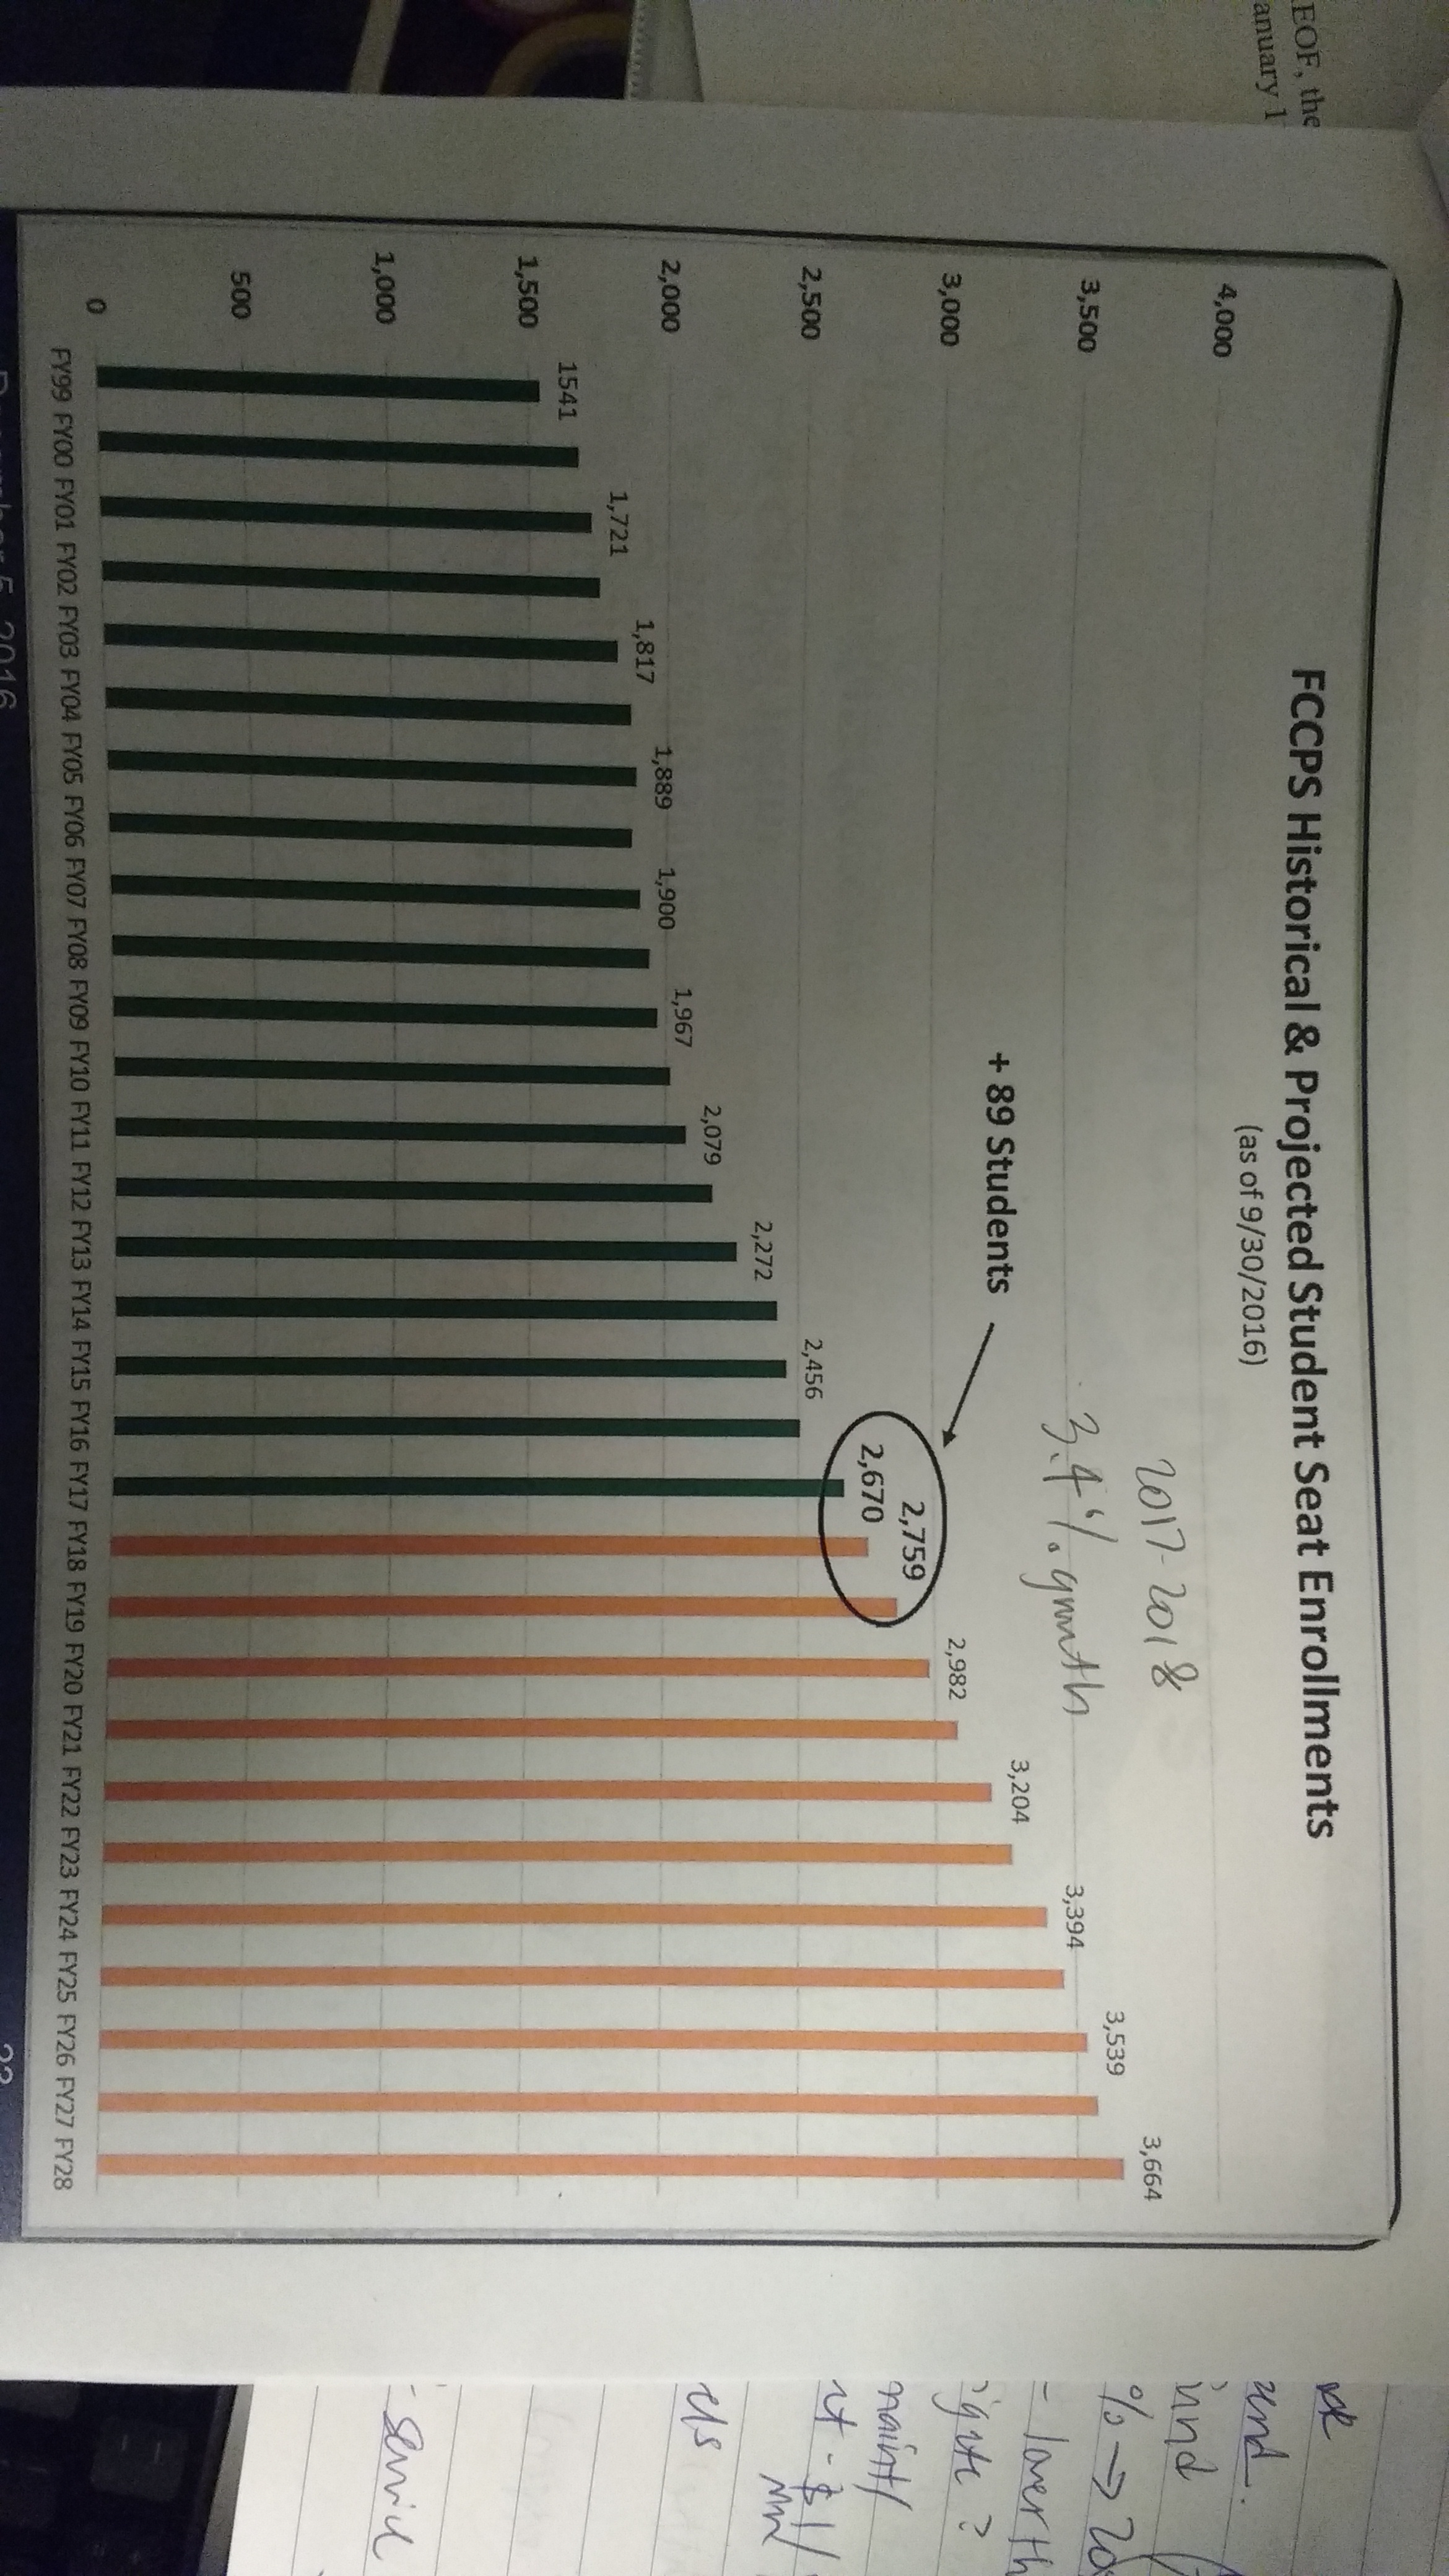 EOF, the
anuary 1
FCCPS Historical & Projected Student Seat Enrollments
(as of 9/30/2016)
2017-2018
3.4% growth
+ 89 Students
4,000
3,500
3,000
2,500
2,000
1,500
1,000
500
0
1541
1,721
1,817
1,889
1,900
1,967
2,079
2,272
2,456
2,670
2,759
2,982
3,204
3,394
3,539
3,664
FY99 FY00 FY01 FY02 FY03 FY04 FY05 FY06 FY07 FY08 FY09 FY10 FY11 FY12 FY13 FY14 FY15 FY16 FY17 FY18 FY19 FY20 FY21 FY22 FY23 FY24 FY25 FY26 FY27 FY28
5, 2016
und.
ind
% → 20
- lower th
maint/
- $1/